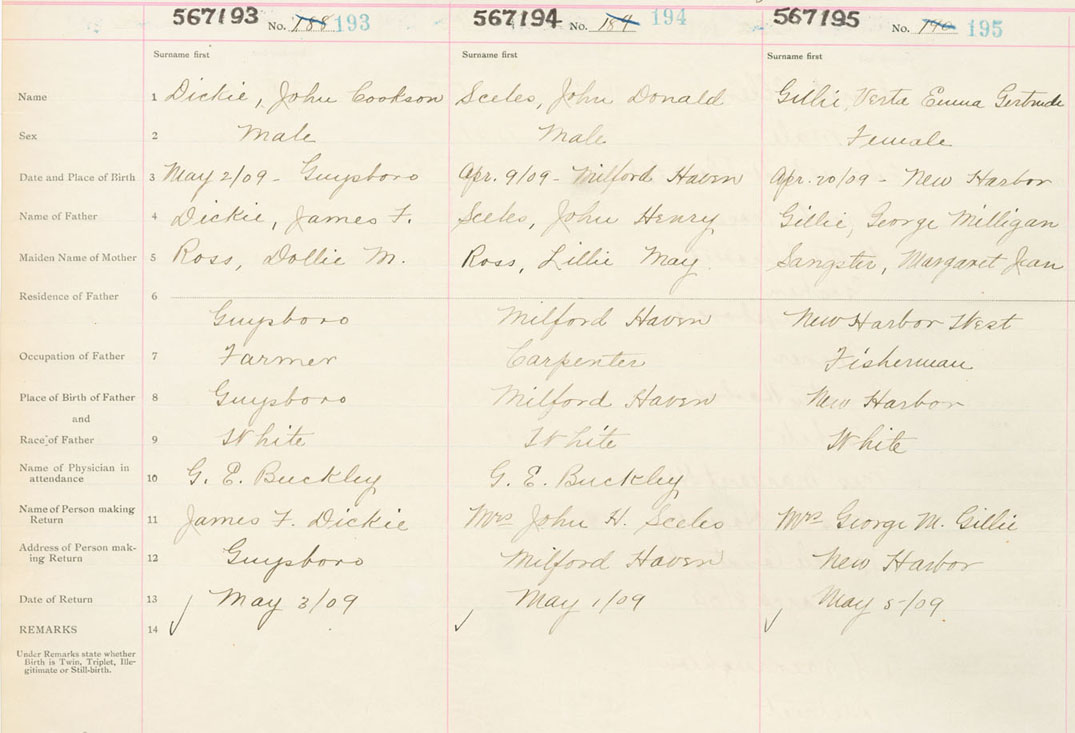 567193 No. 188 193 567194 No. 189 194 567195 No. 190 195
Surname first Surname first Surname first
Name 1 Dickie, John Cookson Sceles, John Donald Gillie, Verta Emma Gertrude
Sex 2 Male Male Female
Date and Place of Birth 3 May 2/09 - Guysboro Apr. 9/09 - Milford Haven Apr. 20/09 - New Harbor
Name of Father 4 Dickie, James F. Sceles, John Henry Gillie, George Milligan
Maiden Name of Mother 5 Ross, Dollie M. Ross, Lillie May Sangster, Margaret Jean
Residence of Father 6
Guysboro Milford Haven New Harbor West
Occupation of Father 7 Farmer Carpenter Fisherman
Place of Birth of Father 8 Guysboro Milford Haven New Harbor
and
Race of Father 9 White White White
Name of Physician in
attendance 10 G. E. Buckley G. E. Buckley
Name of Person making
Return 11 James F. Dickie Mrs John H. Sceles Mrs George M. Gillie
Address of Person mak-
ing Return 12 Guysboro Milford Haven New Harbor
Date of Return 13 May 3/09 May 1/09 May 5/09
REMARKS 14
Under Remarks state whether
Birth is Twin, Triplet, Ille-
gitimate or Still-birth.